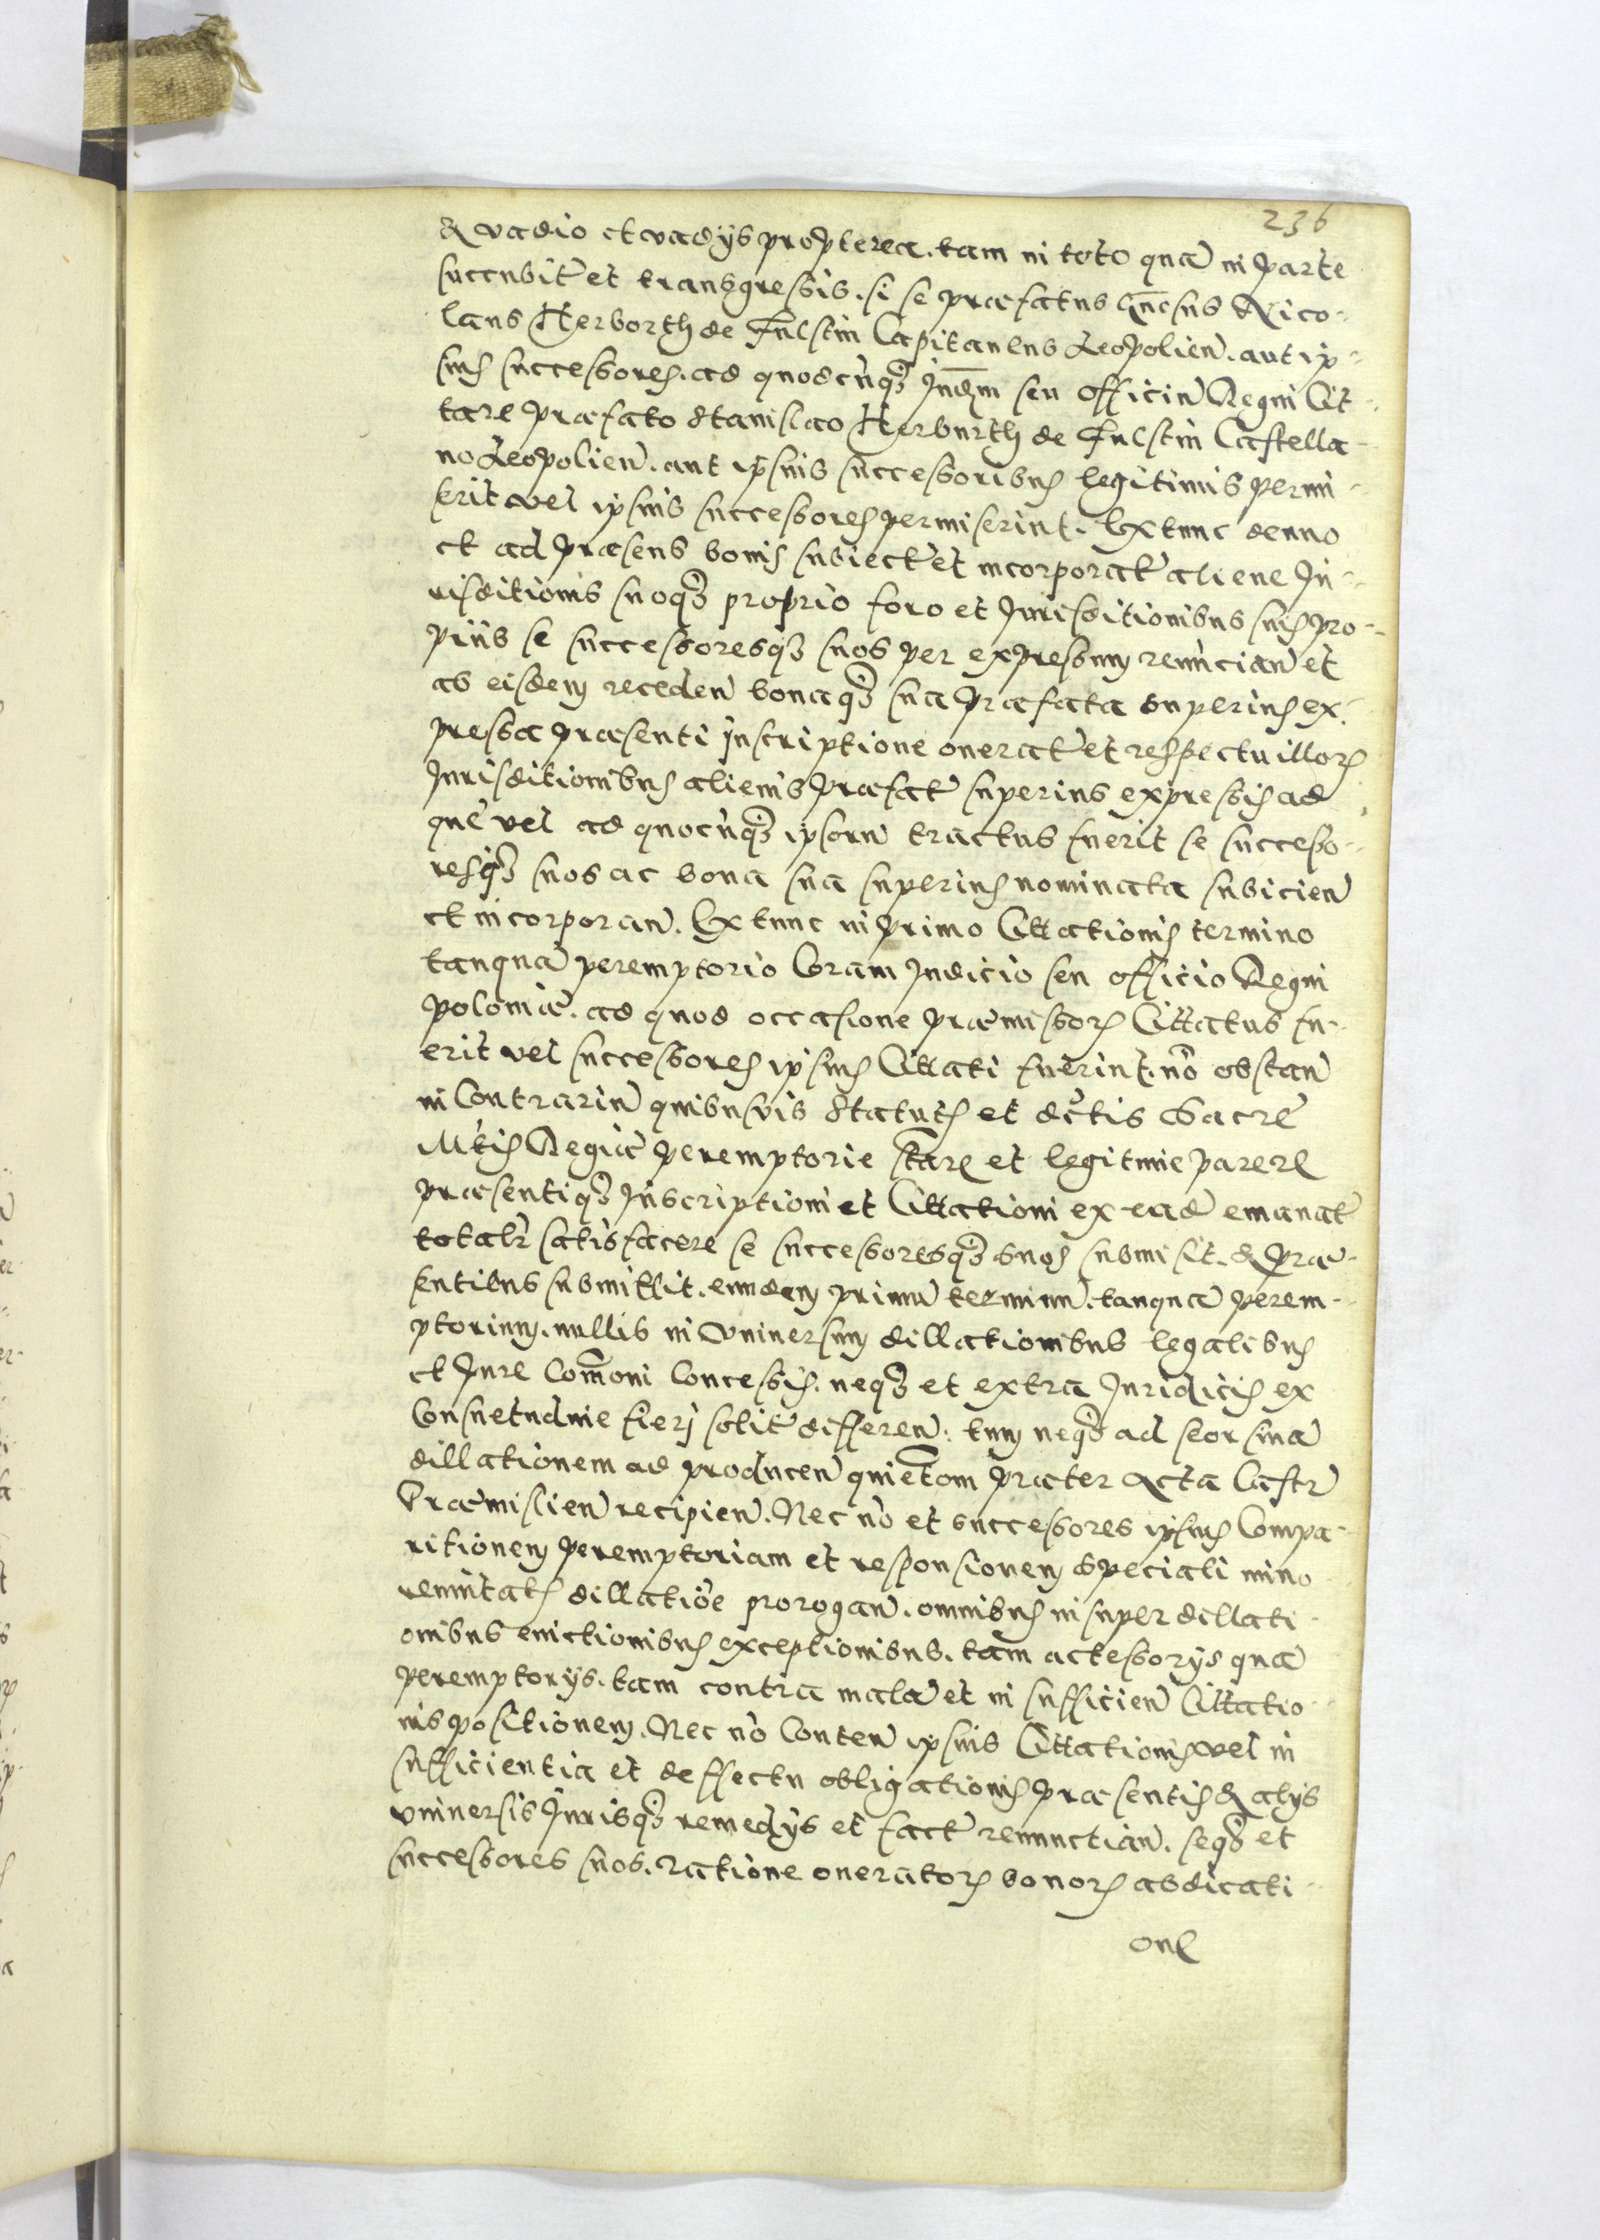 236
& vadio et vadÿs propterea. tam in toto quā in parte
succubit̄ et transgressis. si se praefatus Gn̄osus Nico-
laus Herborth de Fulstin Capitaneus Leopolien̄. aut ip-
sius successores. ad quodcūq3 Iudm̄ seu officiū Regni Cit-
tare praefato Stanislao Herburth de Fulstin Castella-
no Leopolien̄. aut ipsius successoribus legitimis permi-
serit vel ipsius successores permiserint. Extunc denuo
et ad praesens bonis subiect̄ et incorporat̄ aliene Iu-
risditionis suoq3 proprio foro et Iurisditionibus suis pro-
priis se successoresq3 suos per expressum renūcian̄ et
ab eisdem receden̄ bonaq3 sua praefata superius ex-
pressa praesenti Inscriptione onerat̄ et respectu illor̄
Jurisditionibus alienis praefat̄ superius expressis ad
quē vel ad quocūq3 ipsorū tractus fuerit se successo-
resq3 suos ac bona sua superius nominata subicien̄
et incorporan̄. Extunc in primo Cittationis termino
tanquā peremptorio Coram Judicio seu officio Regni
Poloniae. ad quod occasione praemissor̄ Cittatus fu-
erit vel successores ipsius Cittati fuerint. nō obstan̄
in Contrariū quibusvis Statutis et dc̄tis Sacrē
Mt̄is Regiae peremptorie Stare et legitime parere
praesentiq3 Inscriptioni et Cittationi ex ead̄ emanat̄
totalr̄ satisfacere se successoresq3 suos submisit. & prae-
sentibus submittit. eundem primū terminū. tanquā perem-
ptorium. nullis in Vniuersum dillationibus legalibus
et Jure Com̄oni Concessis. neq3 et extra Juridicis ex
Consuetudine fierj solit̄ differen̄. tum neq3 ad seorsiuā
dillationem ad producen̄ quietōm praeter Acta Castr̄
Praemislien̄ recipien̄. Nec nō et successores ipsius Compa-
ritionem peremptoriam et responsionem speciali mino-
rennitatis dillatiōe prorogan̄. omnibus insuper dillati-
onibus euictionibus exceptionibus. tam actessorÿs quā
peremptorÿs. tam contra malā et insufficien̄ Cittatio-
nis positionem. Nec nō Conten̄ ipsius Cittationis vel in
sufficientia et deffectu obligationis praesentis & alÿs
vniuersis Jurisq3 remedÿs et fact̄ renunctian̄. seq3 et
successores suos. ratione onerator̄ bonor̄ abdicati-
one